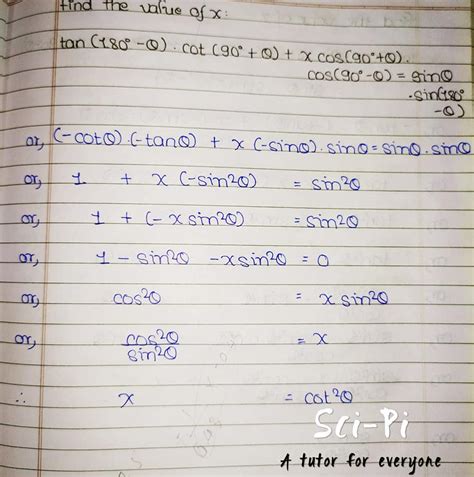 find the value of x:
tan (180° - θ) . cot (90° + θ) + x cos(90°+θ).
cos(90° - θ) = sinθ
.sin(180°
- θ)
or, (-cotθ).(-tanθ) + x (-sinθ).sinθ = sinθ.sinθ
or, 1 + x (-sin²θ) = sin²θ
or, 1 + (-x sin²θ) = sin²θ
or, 1 - sin²θ - x sin²θ = 0
or, cos²θ = x sin²θ
or, cos²θ / sin²θ = x
∴ x = cot²θ
Sci-Pi
A tutor for everyone